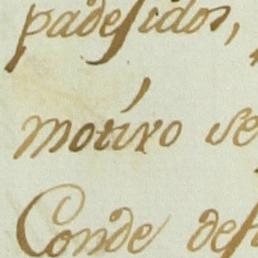 padesidos,
motivo se
Conde des